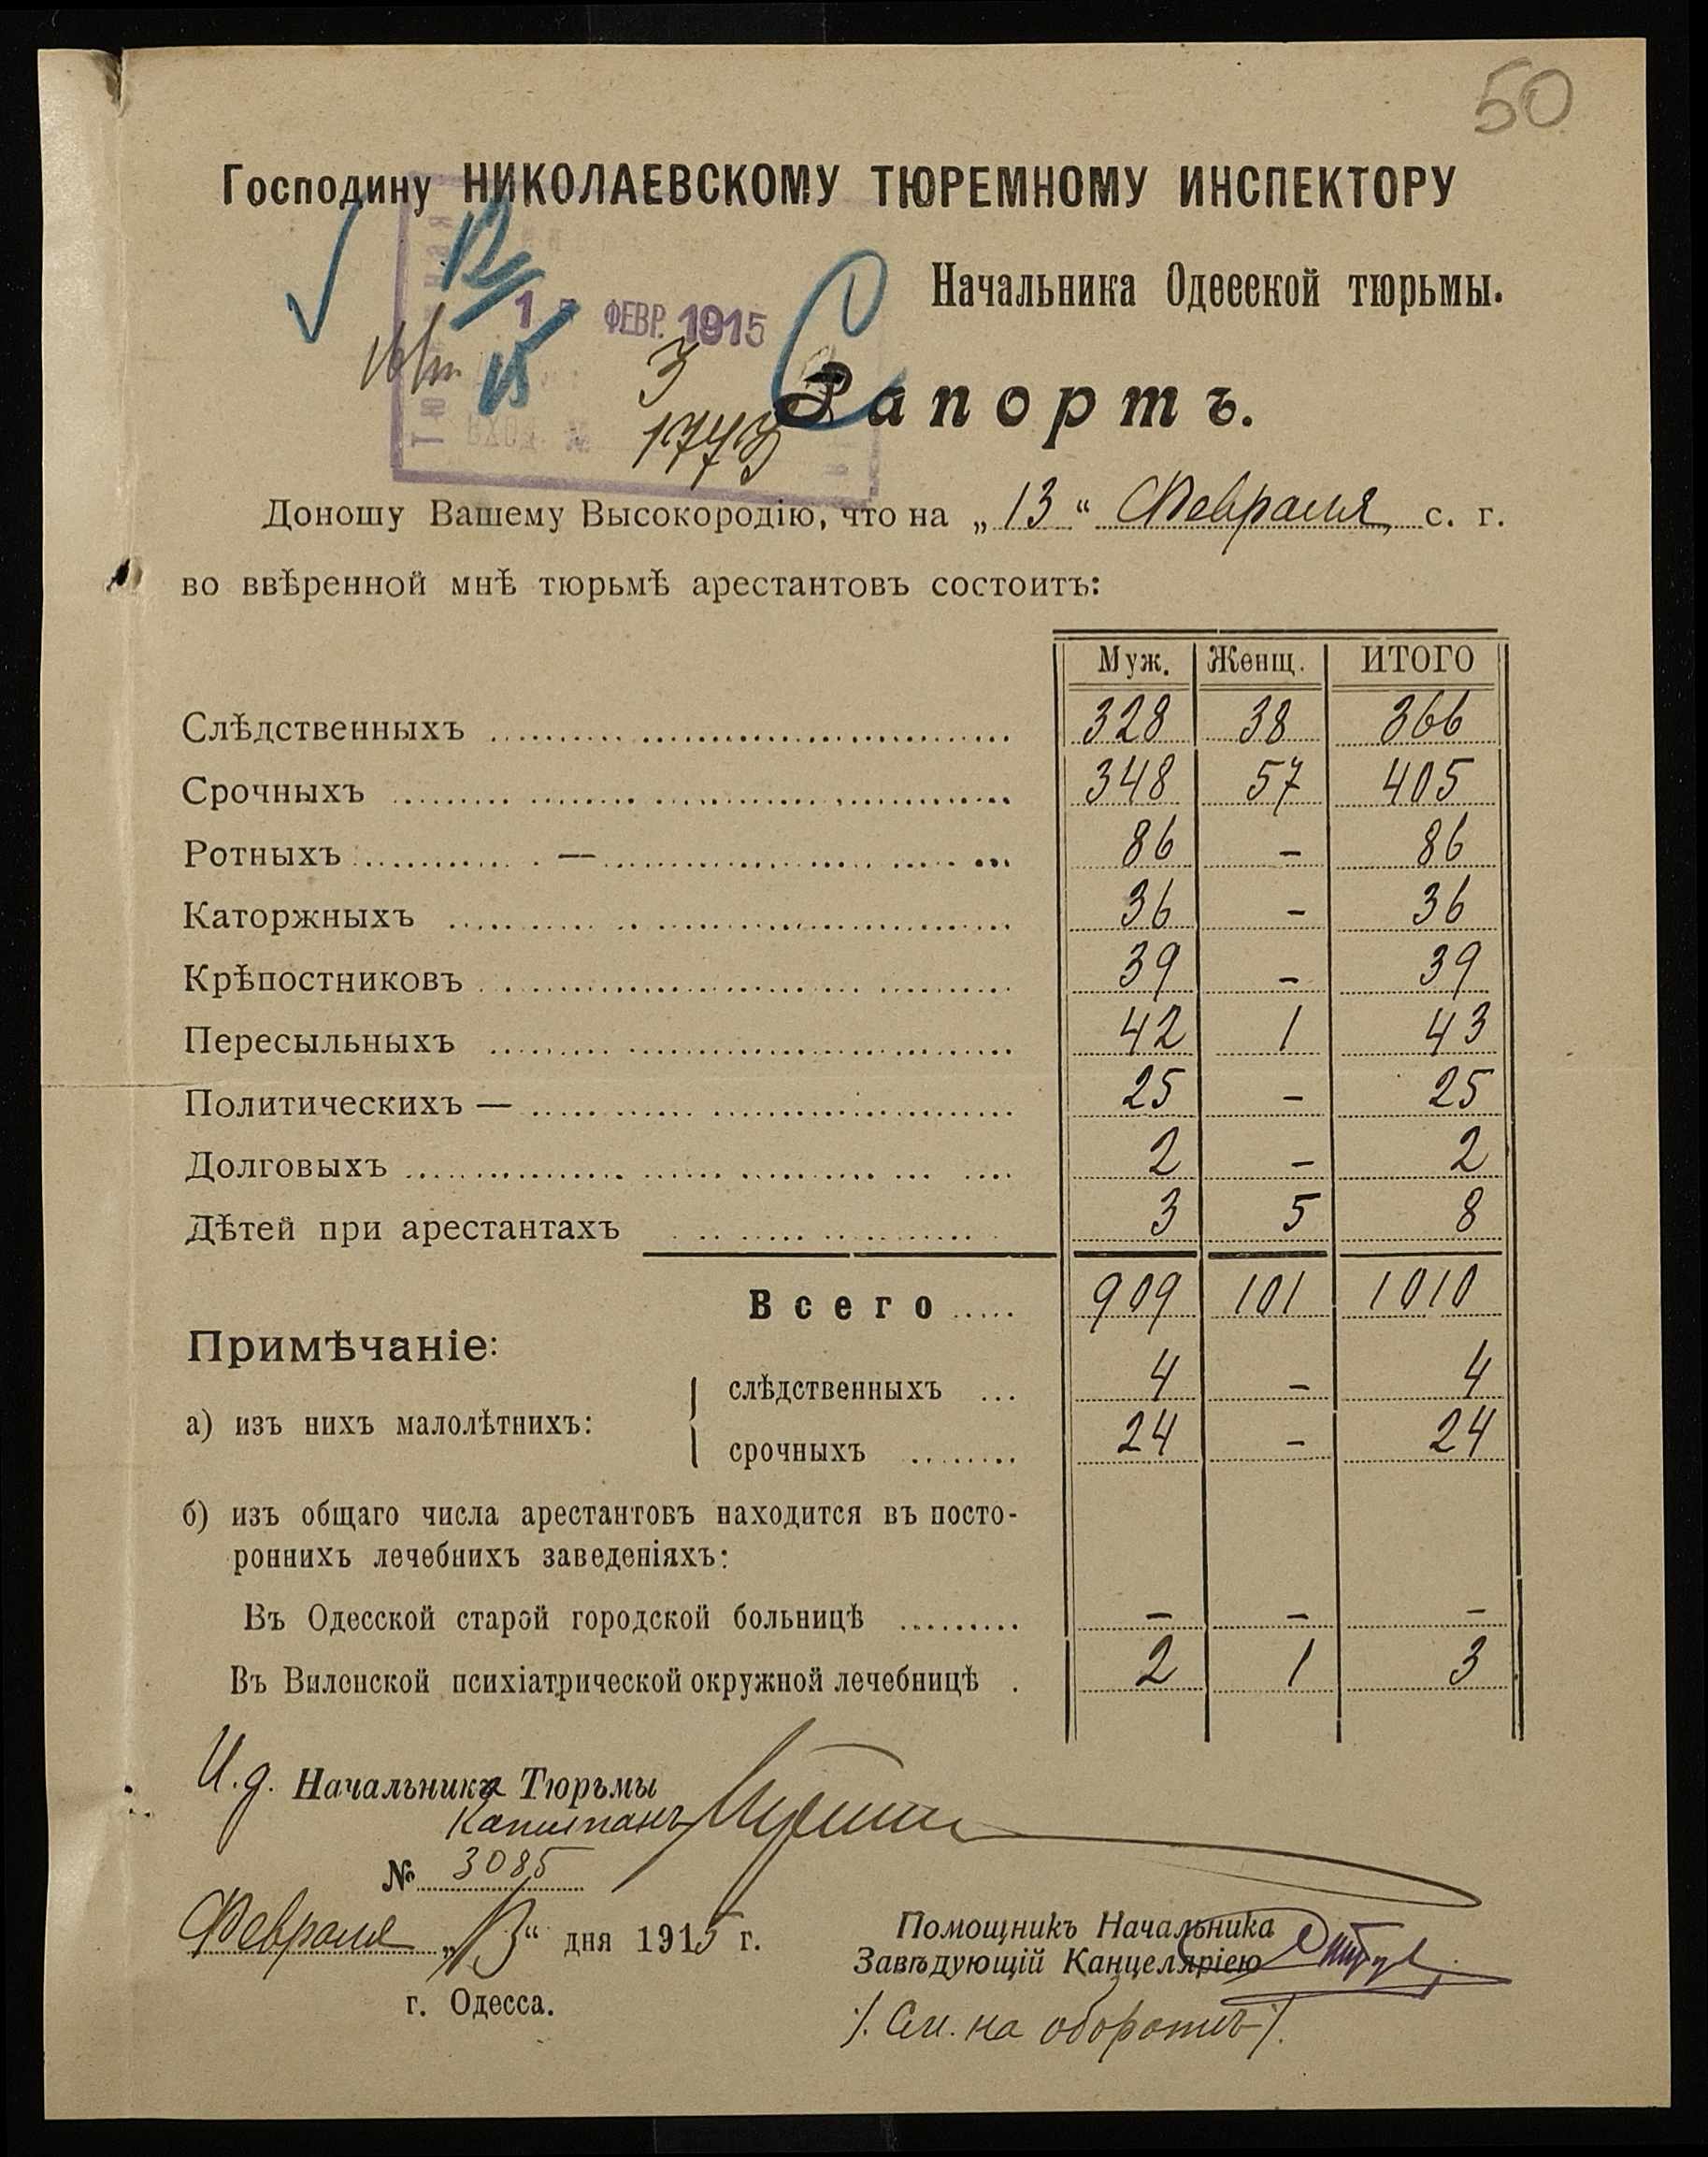 50
Господину НИКОЛАЕВСКОМУ ТЮРЕМНОМУ ИНСПЕКТОРУ
Начальника Одесской тюрьмы.
ФЕВР. 1915
3
1773
ВХОД. №
Рапортъ.
Доношу Вашему Высокородію, что на „13“ Февраля с. г.
во ввѣренной мнѣ тюрьмѣ арестантовъ состоитъ:
Муж. Женщ. ИТОГО
Слѣдственныхъ 328 38 366
Срочныхъ 348 57 405
Ротныхъ — 86 - 86
Каторжныхъ 36 - 36
Крѣпостниковъ 39 - 39
Пересыльныхъ 42 1 43
Политическихъ — 25 - 25
Долговыхъ 2 - 2
Дѣтей при арестантахъ 3 5 8
Всего 909 101 1010
Примѣчаніе:
а) изъ нихъ малолѣтнихъ:
слѣдственныхъ 4 - 4
срочныхъ 24 - 24
б) изъ общаго числа арестантовъ находится въ посто-
роннихъ лечебнихъ заведеніяхъ:
Въ Одесской старой городской больницѣ - - -
Въ Виленской психіатрической окружной лечебницѣ 2 1 3
И.д. Начальника Тюрьмы
Капитанъ
№ 3085
Февраля „13“ дня 1915 г.
г. Одесса.
Помощникъ Начальника
Завѣдующій Канцеляріею
/. См. на оборотѣ /.